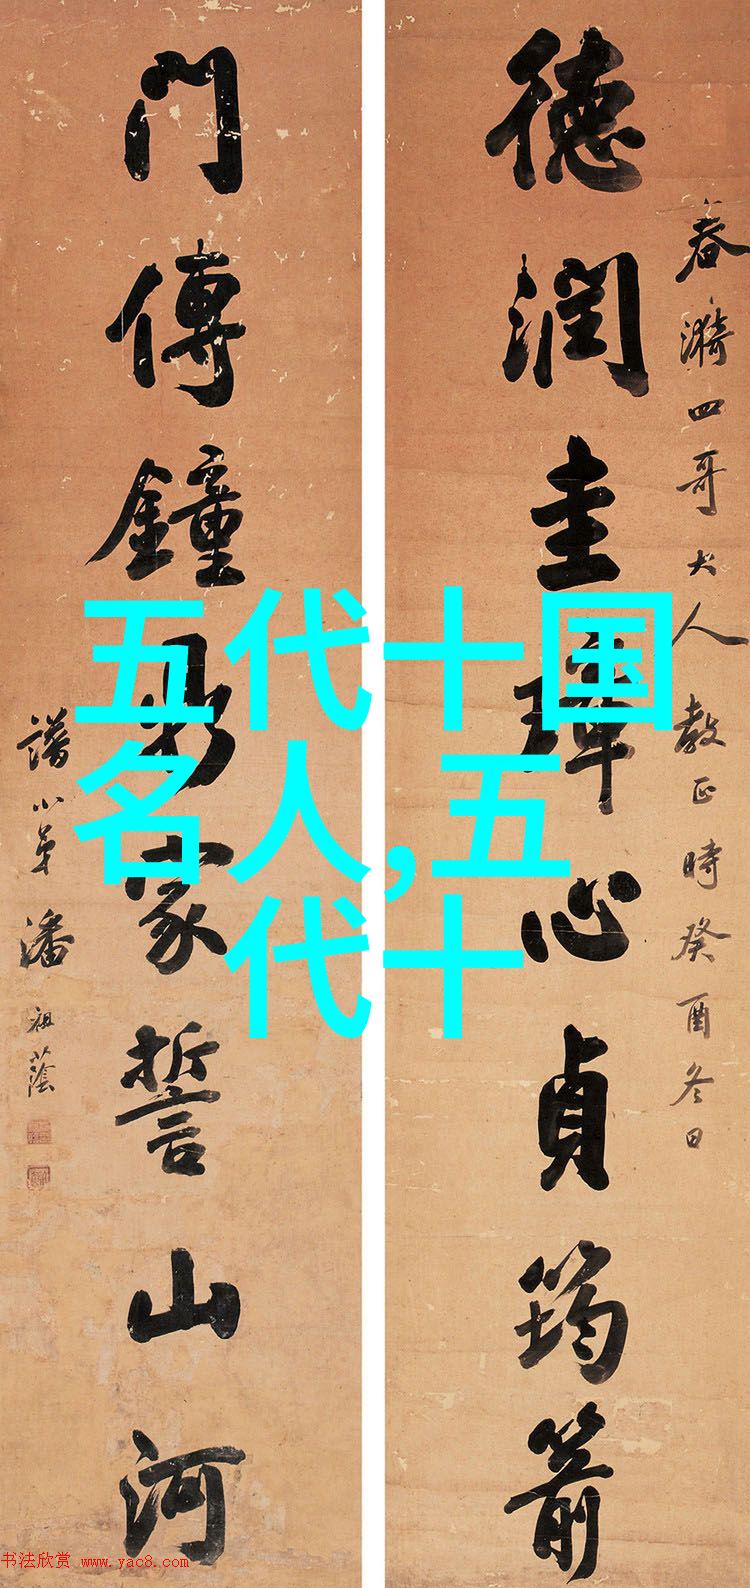 春漪四哥大人教正時癸酉冬日
德潤圭璋心貞筠箭
門傳鐘鼎家誓山河
譜小弟潘祖蔭
五代十国
名人,五
代十
书法欣赏 www.yac8.com